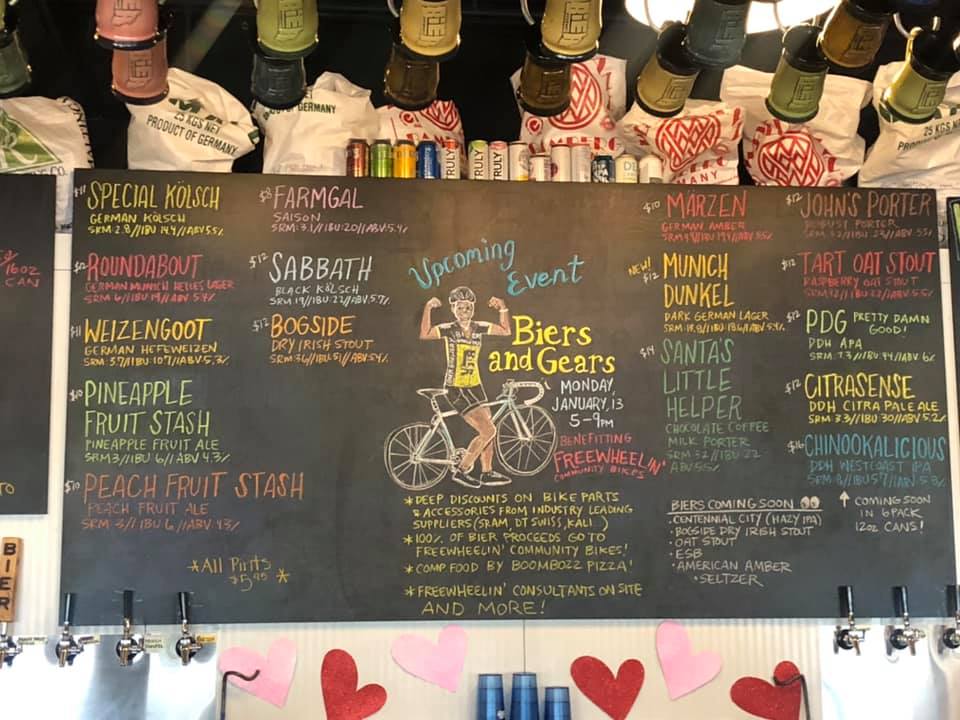 25 KGS NET
PRODUCT OF GERMANY
GERMANY
TRULY
TRULY
TRULY
25 KGS NET
16OZ
CAN
BIER
$11 SPECIAL KÖLSCH
GERMAN KÖLSCH
ROUNDABOUT
GERMAN MUNICH HELLES LAGER
$11 WEIZENGOOT
GERMAN HEFEWEIZEN
$10 PINEAPPLE
FRUIT STASH
PINEAPPLE FRUIT ALE
SRM 3//IBU 6//ABV 4.3%
$10 PEACH FRUIT STASH
PEACH FRUIT ALE
SRM 3//IBU 6//ABV 4.3%
*All Pints
$5.95 *
FARMGAL
SAISON
SRM: 3.1//IBU: 20//ABV: 5.4%
$12 SABBATH
BLACK KÖLSCH
SRM 19//IBU: 22//ABV 5.7%
$12 BOGSIDE
DRY IRISH STOUT
Upcoming
Event
Biers
and Gears
MONDAY,
JANUARY, 13
5-9PM
BENEFITTING
FREEWHEELIN'
COMMUNITY BIKES
*DEEP DISCOUNTS ON BIKE PARTS
& ACCESSORIES FROM INDUSTRY LEADING
SUPPLIERS (SRAM, DT SWISS, KALI )
*100% OF BIER PROCEEDS GO TO
FREEWHEELIN' COMMUNITY BIKES!
*COMP FOOD BY BOOMBOZZ PIZZA!
*FREEWHEELIN' CONSULTANTS ON SITE
AND MORE!
$10 MÄRZEN
GERMAN AMBER
NEW!
$12 MUNICH
DUNKEL
DARK GERMAN LAGER
$14 SANTA'S
LITTLE
HELPER
CHOCOLATE COFFEE
MILK PORTER
SRM 32//IBU 22
ABV 5.5%
BIERS COMING SOON
·CENTENNIAL CITY (HAZY IPA)
·BOGSIDE DRY IRISH STOUT
·OAT STOUT
·ESB
·AMERICAN AMBER
·SELTZER
$12 JOHN'S PORTER
ROBUST PORTER
$12 TART OAT STOUT
RASPBERRY OAT STOUT
$12 PDG PRETTY DAMN
GOOD!
DDH APA
SRM: 7.3//IBU: 44//ABV: 6%
$12 CITRASENSE
DDH CITRA PALE ALE
SRM 3.3//IBU: 30//ABV 5.2%
CHINOOKALICIOUS
DDH WESTCOAST IPA
↑ COMING SOON
IN 6 PACK
12oz CANS!